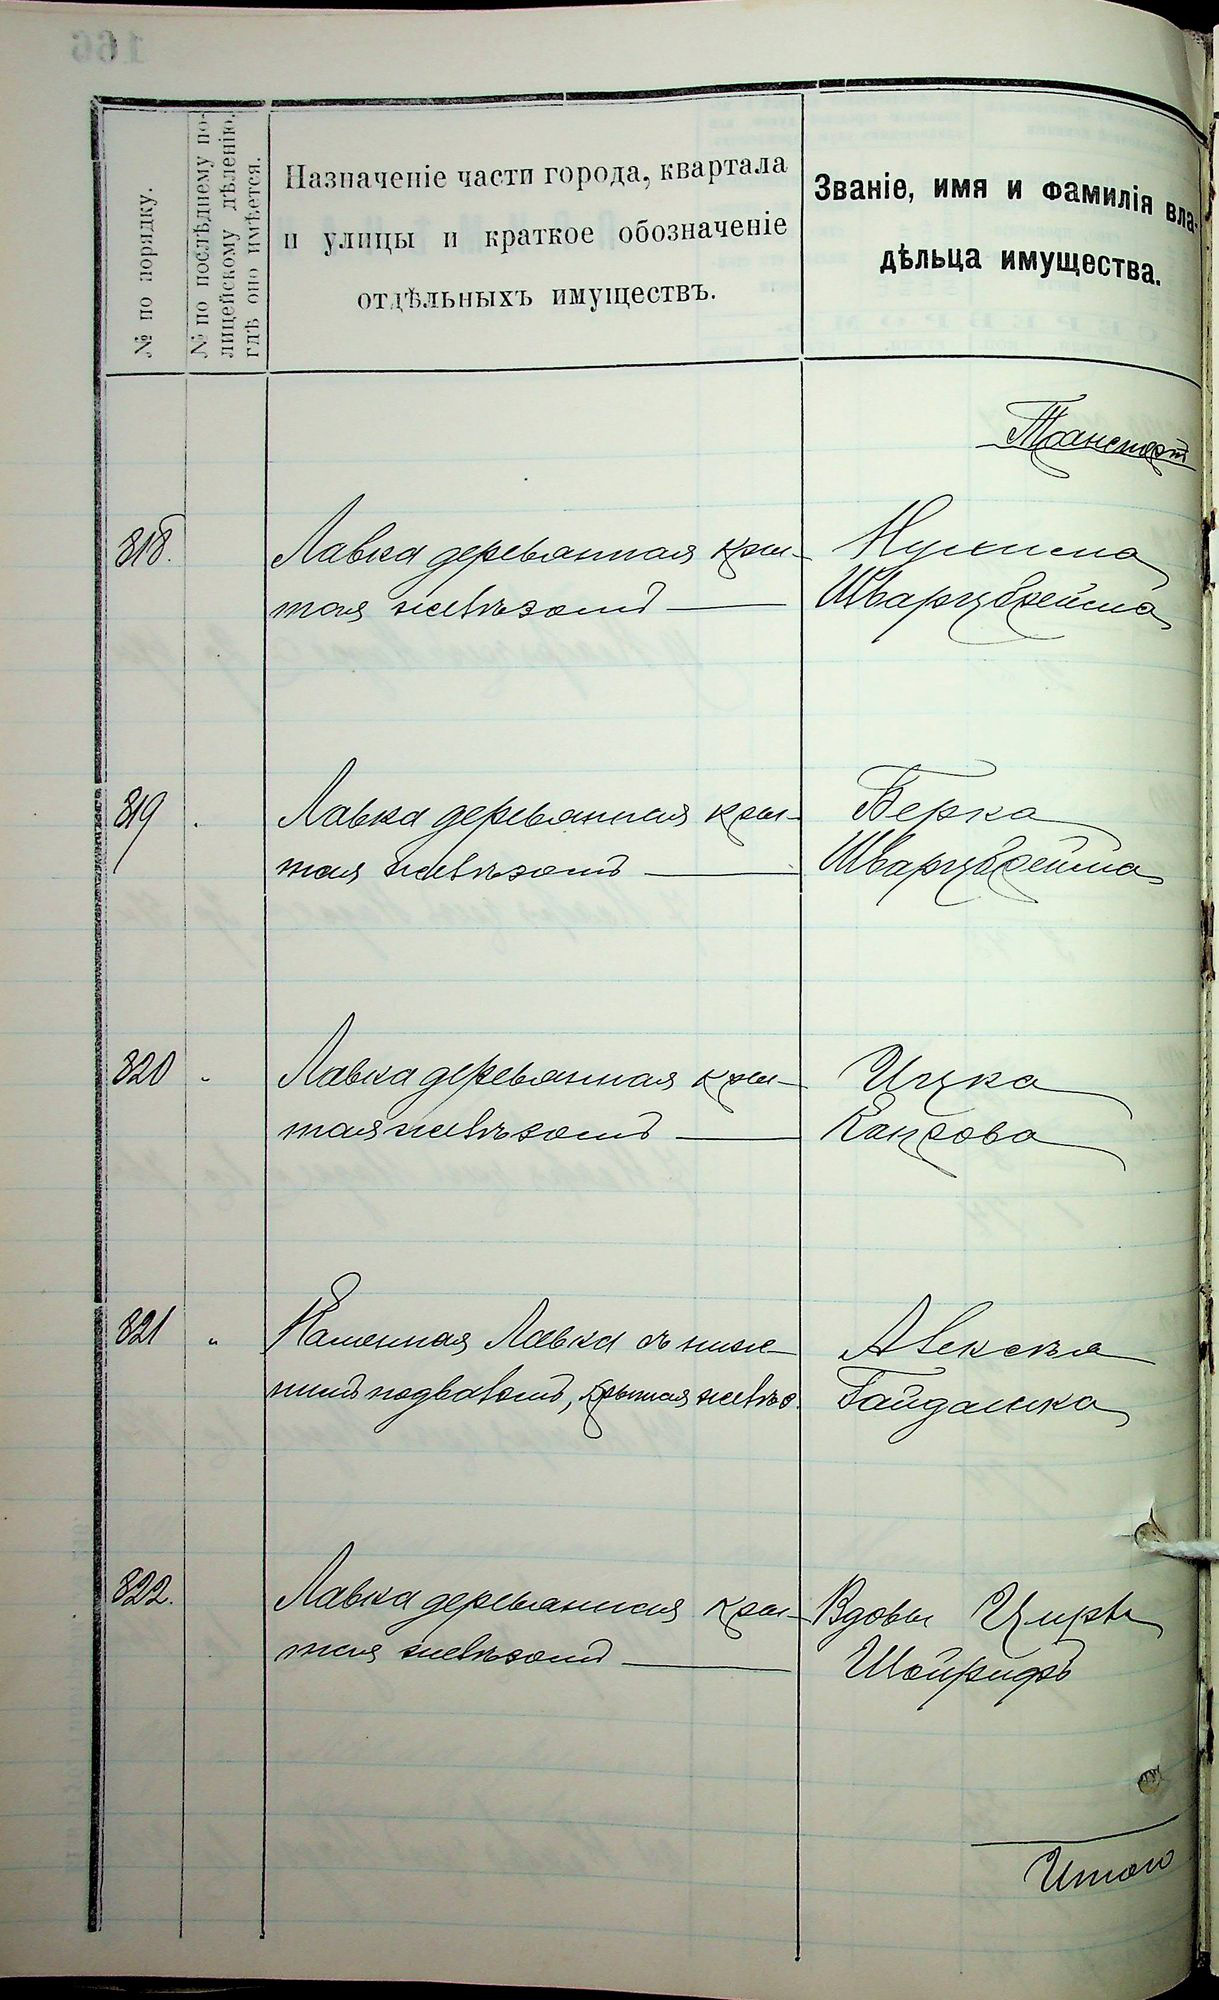 № по порядку.
№ по послѣднему по-
лицейскому дѣленію,
гдѣ оно имѣется.
Назначеніе части города, квартала
и улицы и краткое обозначеніе
отдѣльныхъ имуществъ.
Званіе, имя и фамилія вла-
дѣльца имущества.
Транспортъ
818.
Лавка деревянная кры-
тая желѣзомъ
Шварцбрейма
819
Лавка деревянная кры-
тая желѣзомъ
Берка
Шварцбрейма
820
Лавка деревянная кры-
тая желѣзомъ
Ицка
821
Каменная Лавка съ ниж-
нимъ подваломъ, крытая желѣз.
Алексѣя
Гайдамака
822.
Лавка деревянная кры-
тая желѣзомъ
Вдовы
Итого